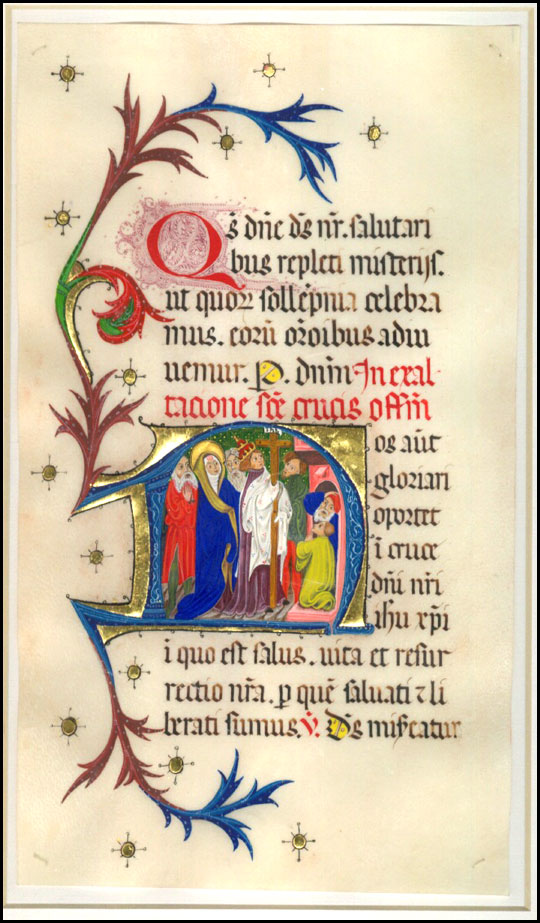 Qs̄ dn̄e ds̄ nr̄. salutari
bus repleti misterijs.
ut quoꝝ sollēpnia celebra
mus. eorū or̄oibus adiu
uemur. P. dnm̄ In exal-
tacione sc̄e crucis offm̄
Nos aūt
gloriari
oportet
ī cruce
dn̄i nr̄i
ihu xp̄i
ī quo est salus. uita et resur
rectio nr̄a. ꝑ quē saluati ⁊ li
berati sumus. V̄. Ds̄ misꝰeatur